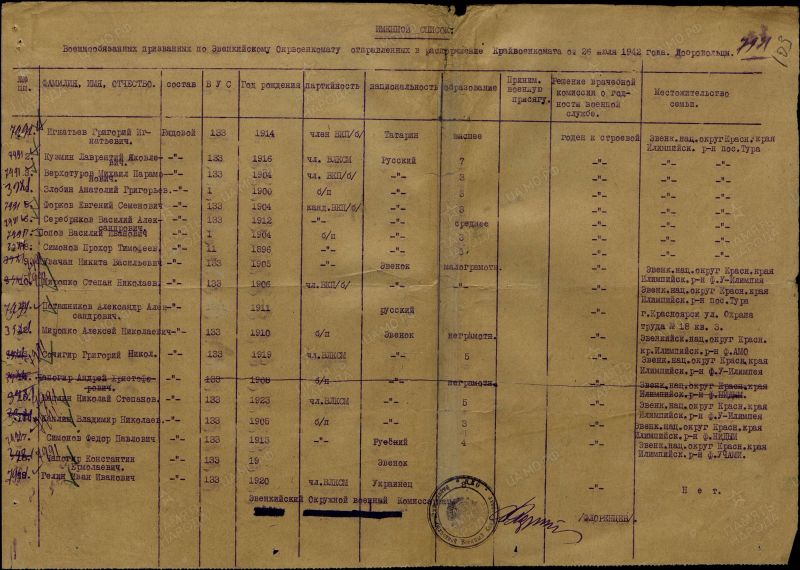 ИМЕННОЙ СПИСОК
Военнообязанных призванных по Эвенкийскому Окрвоенкомату отправленных в распоряжение Крайвоенкомата от 26 июля 1942 года. Добровольцы.
7991
103
№№ пп. ФАМИЛИЯ, ИМЯ, ОТЧЕСТВО. состав В У С Год рождения партийность национальность образование Приним. военную присягу. Решение врачебной комиссии о годности военной службе. Местожительство семьи.
Игнатьев Григорий Игнатьевич. Рядовой 133 1914 член ВКП/б/ Татарин высшее годен к строевой Эвенк.нац.округ Красн.края Илимпийск. р-н пос.Тура
Кузмин Лаврентий Яковлевич. -"- 133 1916 чл. ВЛКСМ Русский 7 -"- -"- -"-
Верхотуров Михаил Парамонович. -"- 133 1904 чл. ВКП/б/ -"- 3 -"- -"- -"-
Злобин Анатолий Григорьев. -"- 1 1900 б/п -"- 3 -"- -"- -"-
Форков Евгений Семенович -"- 133 1904 канд.ВКП/б/ -"- 3 -"- -"- -"-
Серебряков Василий Александрович -"- 133 1912 -"- -"- среднее -"- -"- -"-
Попов Василий Иванович -"- 1 1904 б/п -"- 3 -"- -"- -"-
Симонов Прохор Тимофеев. -"- 11 1896 -"- -"- 3 -"- -"- -"-
Увачан Никита Васильевич -"- 133 1905 -"- Эвенок малограмотн. -"- Эвенк.нац. округ Красн. края Илимпийск. р-н ф.У-Илимпия
Мирошко Степан Николаев. -"- 133 1906 чл.ВКП/б/ -"- -"- -"- Эвенк.нац. округ Красн.края Илимпийск. р-н пос.Тура
Поташников Александр Александрович. -"- 1911 русский -"- г.Красноярск ул. Охрана труда № 18 кв. 3.
Мирошко Алексей Николаевич -"- 133 1910 б/п Эвенок неграмотн. -"- Эвенкийск. нац. округ Красн. кр.Илимпийск. р-н ф.АМО
Сочигир Григорий Никол. -"- 133 1919 чл.ВЛКСМ -"- 5 -"- Эвенк.нац.округ Красн.края Илимпийск. р-н ф.У-Илимпея
Чапогир Андрей Христофорович. -"- 133 1908 б/п -"- неграмотн. -"- Эвенк.нац.округ Красн.края Илимпийск. р-н ф.НИДЫМ
Николай Степанов. -"- 133 1923 чл.ВЛКСМ -"- 5 -"- Эвенк.нац.округ Красн.края Илимпийск. р-н ф.У-Илимпея
Владимир Николаев. -"- 133 1905 б/п -"- 3 -"- Эвенк.нац.округ Красн.края Илимпийск. р-н ф.НИДЫМ
Симонов Федор Павлович -"- 133 1913 -"- Русский 4 -"- Эвенк.нац.округ Красн.края Илимпийск. р-н ф.УЧАМИ.
Чапогир Константин Ермолаевич. -"- 133 19 Эвенок
Гелин Иван Иванович -"- 133 1920 чл.ВЛКСМ Украинец -"- Н е т.
Эвенкийский Окружной военный Комиссар
/ФЛОРЕНЦЕВ/.